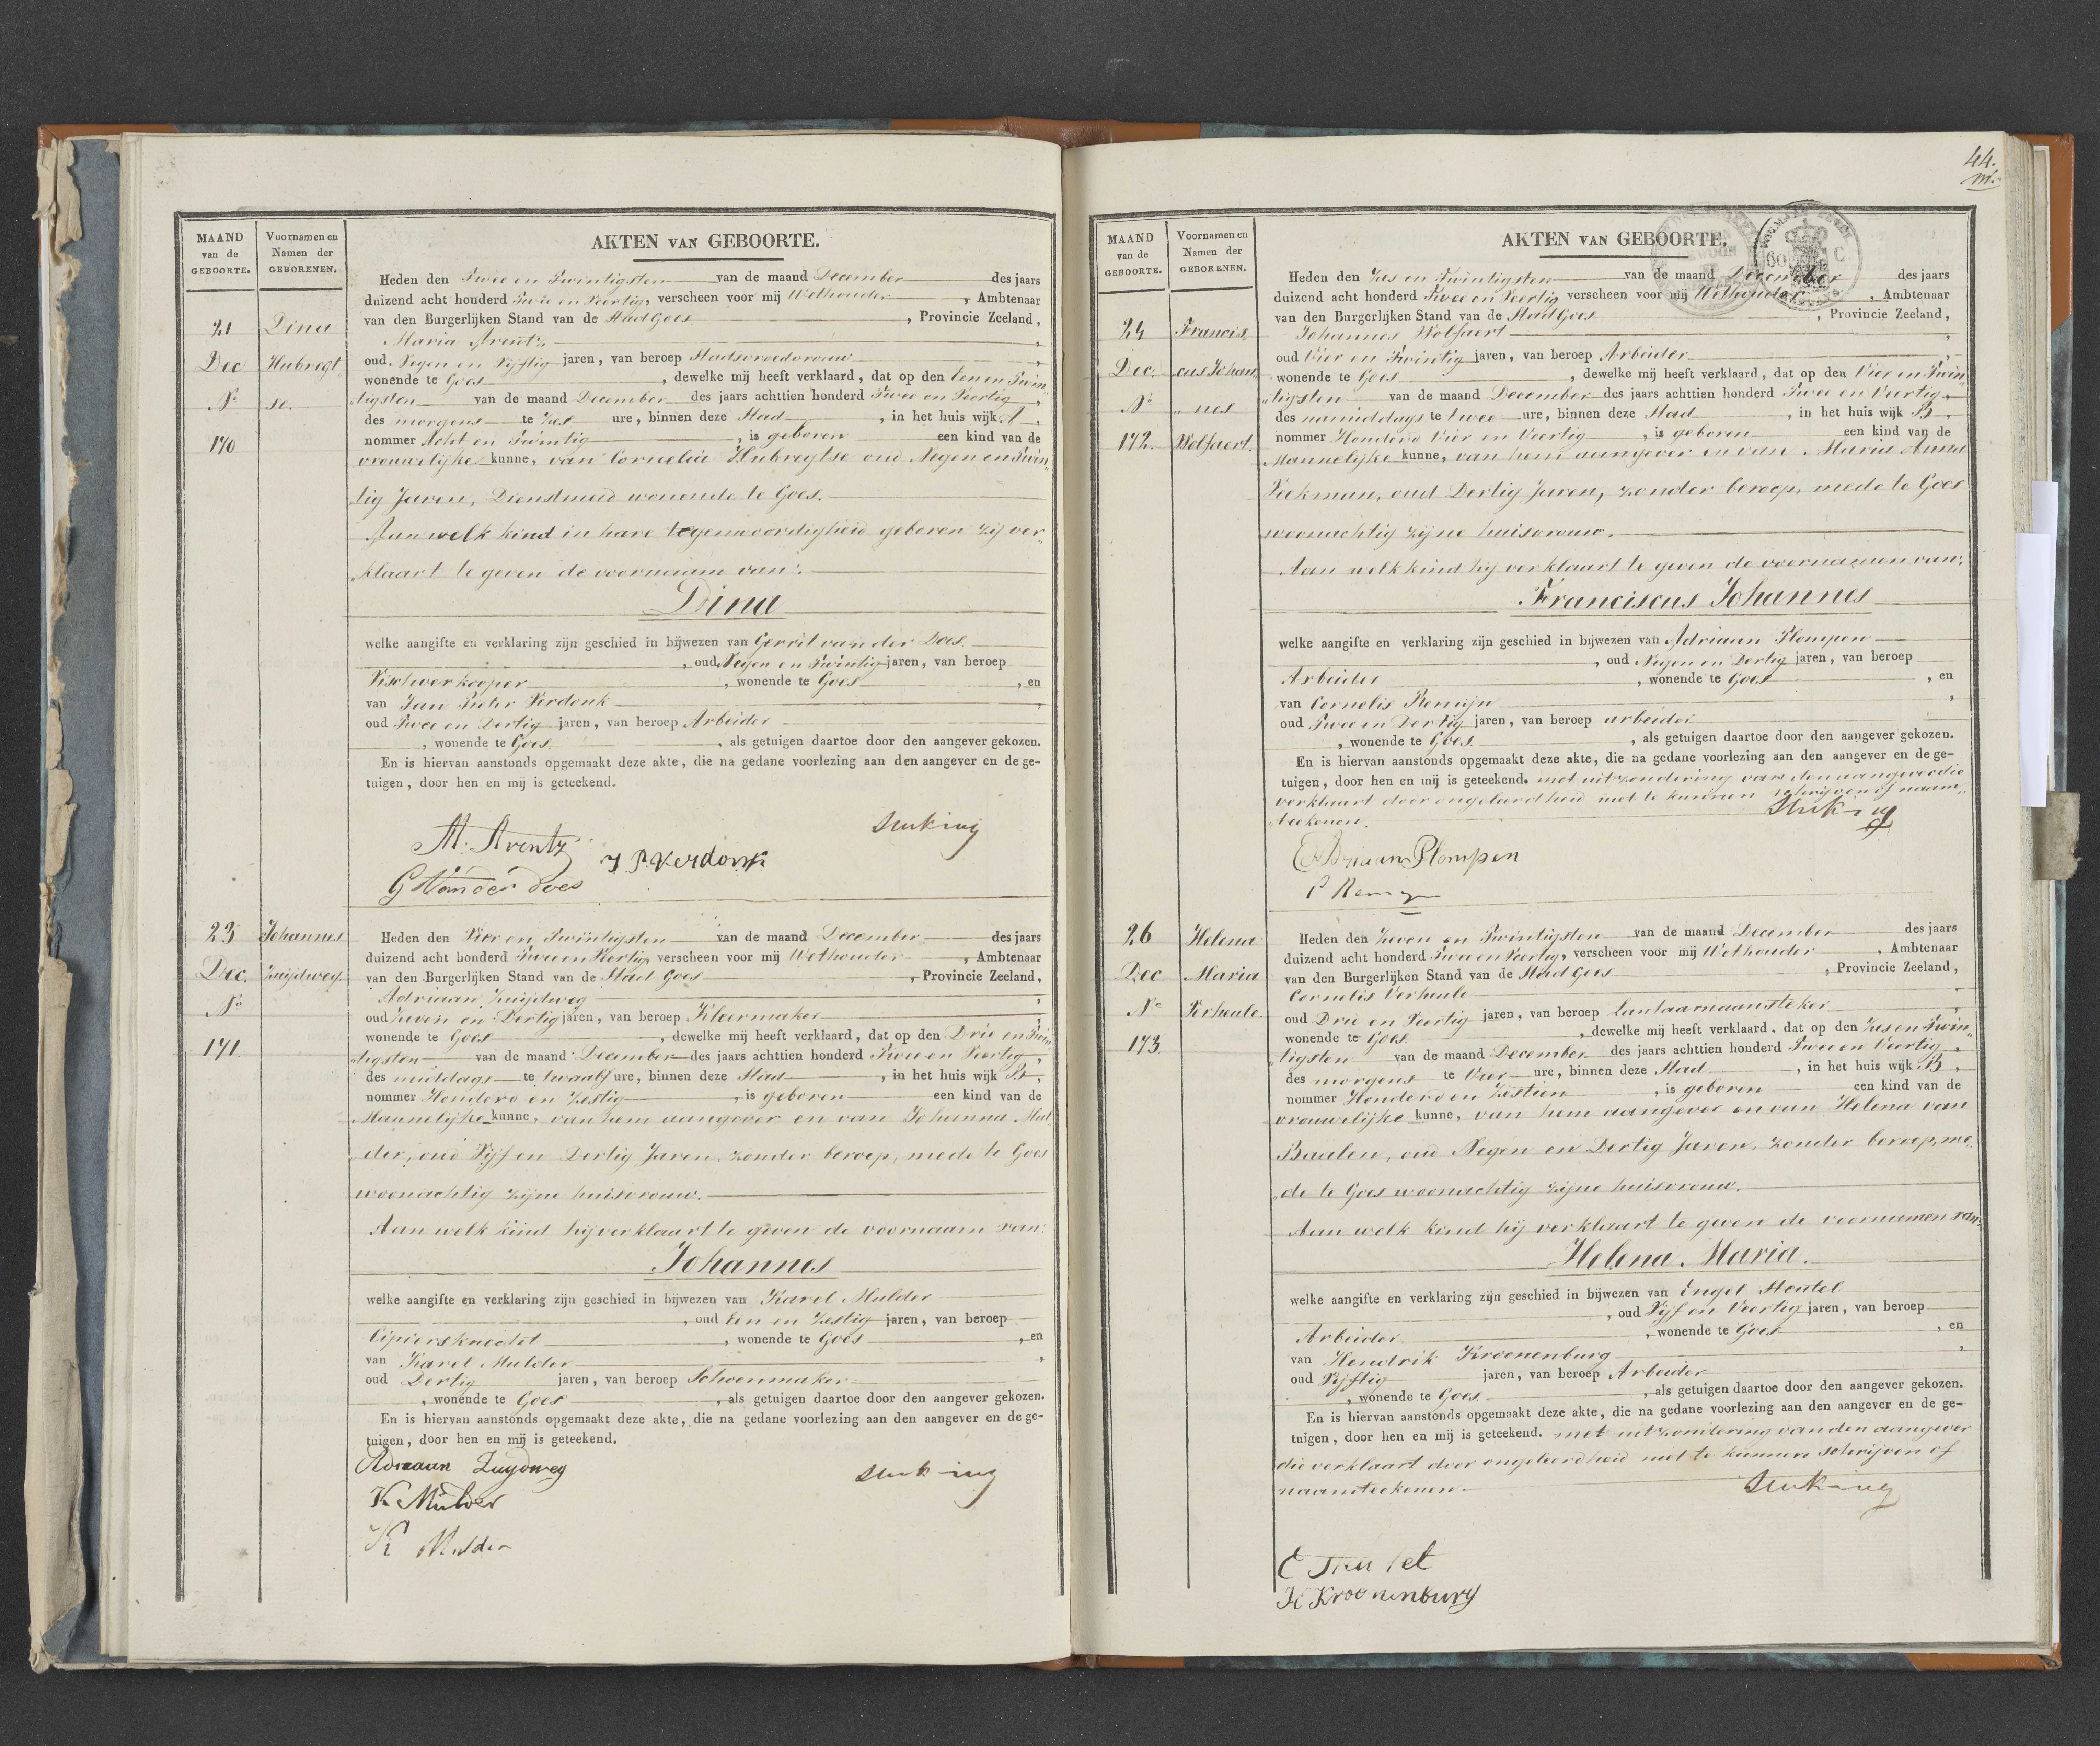 MAAND
van de
GEBOORTE.
Voornamen en
Namen der
GEBORENEN.
AKTEN VAN GEBOORTE.
21
Dec
No
170
Dina
Hubregt
se.
Heden den Twee en Twintigsten van de maand December des jaars
duizend acht honderd Twee en Veertig, verscheen voor mij Wethouder, Ambtenaar
van den Burgerlijken Stand van de Stad Goes, Provincie Zeeland,
Maria Arentz,
oud Negen en Vijftig jaren, van beroep Stadsvroedvrouw,
wonende te Goes, dewelke mij heeft verklaard, dat op den Eenen Twin„
„tigsten van de maand December des jaars achttien honderd Twee en Veertig,
des morgens te Zes ure, binnen deze Stad, in het huis wijk A,
nommer Acht en Twintig, is geboren een kind van de
vrouwelijke kunne, van Cornelia Hubregtse oud Negen en Twin„
„tig Jaren, Dienstmeid wonende te Goes.
Aan welk kind in hare tegenwoordigheid geboren zij ver„
„klaart te geven de voornaam van:
Dina
welke aangifte en verklaring zijn geschied in bijwezen van Gerrit van der Does
, oud Negen en Twintig jaren, van beroep
Vischverkooper, wonende te Goes, en
van Jan Pieter Verdonk,
oud Twee en Dertig jaren, van beroep Arbeider
, wonende te Goes, als getuigen daartoe door den aangever gekozen.
En is hiervan aanstonds opgemaakt deze akte, die na gedane voorlezing aan den aangever en de ge-
tuigen, door hen en mij is geteekend.
M. Arentz
J. P. Verdonk
G Van der Does
23
Dec.
No
171
Johannes
Zuijdweg.
Heden den Vier en Twintigsten van de maand December des jaars
duizend acht honderd Twee en Veertig, verscheen voor mij Wethouder, Ambtenaar
van den Burgerlijken Stand van de Stad Goes, Provincie Zeeland,
Adriaan Zuijdweg,
oud Zeven en Dertig jaren, van beroep Kleermaker,
wonende te Goes, dewelke mij heeft verklaard, dat op den Drie en Twin„
„tigsten van de maand December des jaars achttien honderd Twee en Veertig,
des middags te twaalf ure, binnen deze Stad, in het huis wijk B,
nommer Honderd en Zestig, is geboren een kind van de
Mannelijke kunne, van hem aangever en van Johanna Mul„
„der, oud Vijf en Dertig Jaren, zonder beroep, mede te Goes
woonachtig zijne huisvrouw.
Aan welk kind hij verklaart te geven de voornaam van:
Johannes
welke aangifte en verklaring zijn geschied in bijwezen van Karel Mulder
, oud Een en Zestig jaren, van beroep
Cipiersknecht, wonende te Goes, en
van Karel Mulder,
oud Dertig jaren, van beroep Schoenmaker
, wonende te Goes, als getuigen daartoe door den aangever gekozen.
En is hiervan aanstonds opgemaakt deze akte, die na gedane voorlezing aan den aangever en de ge-
tuigen, door hen en mij is geteekend.
Adriaan Zuydweg
K Mulder
K Mulder
44.
MAAND
van de
GEBOORTE.
Voornamen en
Namen der
GEBORENEN.
AKTEN VAN GEBOORTE.
24
Dec.
No
172.
Francis„
„cus Johan„
„nes
Wolfaert.
Heden den Zes en Twintigsten van de maand December des jaars
duizend acht honderd Twee en Veertig verscheen voor mij Wethouder, Ambtenaar
van den Burgerlijken Stand van de Stad Goes, Provincie Zeeland,
Johannes Wolfaert,
oud Vier en Twintig jaren, van beroep Arbeider,
wonende te Goes, dewelke mij heeft verklaard, dat op den Vier en Twin„
„tigsten van de maand December des jaars achttien honderd Twee en Veertig,
des namiddags te twee ure, binnen deze Stad, in het huis wijk B,
nommer Honderd Vier en Veertig, is geboren een kind van de
Mannelijke kunne, van hem aangever en van Maria Anna
Peekman, oud Dertig Jaren, zonder beroep, mede te Goes
woonachtig zijne huisvrouw.
Aan welk kind hij verklaart te geven de voornamen van:
Franciscus Johannes
welke aangifte en verklaring zijn geschied in bijwezen van Adriaan Plompen
, oud Negen en Dertig jaren, van beroep
Arbeider, wonende te Goes, en
van Cornelis Remijn,
oud Twee en Dertig jaren, van beroep arbeider
, wonende te Goes, als getuigen daartoe door den aangever gekozen.
En is hiervan aanstonds opgemaakt deze akte, die na gedane voorlezing aan den aangever en de ge-
tuigen, door hen en mij is geteekend. met uitzondering van den aangever die
verklaart door ongeleerdheid niet te kunnen schrijven of naam„
„teekenen.
Adriaan Plompen
C Remijn
26
Dec
No
173
Helena
Maria
Verheule.
Heden den Zeven en Twintigsten van de maand December des jaars
duizend acht honderd Twee en Veertig, verscheen voor mij Wethouder, Ambtenaar
van den Burgerlijken Stand van de Stad Goes, Provincie Zeeland,
Cornelis Verheule,
oud Drie en Veertig jaren, van beroep lantaarnaansteker,
wonende te Goes, dewelke mij heeft verklaard, dat op den Zes en Twin„
„tigsten van de maand December des jaars achttien honderd Twee en Veertig,
des morgens te Vier ure, binnen deze Stad, in het huis wijk B,
nommer Honderd en Zestien, is geboren een kind van de
vrouwelijke kunne, van hem aangever en van Helena van
Baalen, oud Negen en Dertig Jaren, zonder beroep, me„
„de te Goes woonachtig zijne huisvrouw.
Aan welk kind hij verklaart te geven de voornamen van:
Helena Maria.
welke aangifte en verklaring zijn geschied in bijwezen van Engel
, oud Vijf en Veertig jaren, van beroep
Arbeider, wonende te Goes, en
van Hendrik Kroonenburg,
oud Vijftig jaren, van beroep Arbeider
, wonende te Goes, als getuigen daartoe door den aangever gekozen.
En is hiervan aanstonds opgemaakt deze akte, die na gedane voorlezing aan den aangever en de ge-
tuigen, door hen en mij is geteekend. met uitzondering van den aangever
die verklaart door ongeleerdheid niet te kunnen schrijven of
naamteekenen.
H Kroonenburg